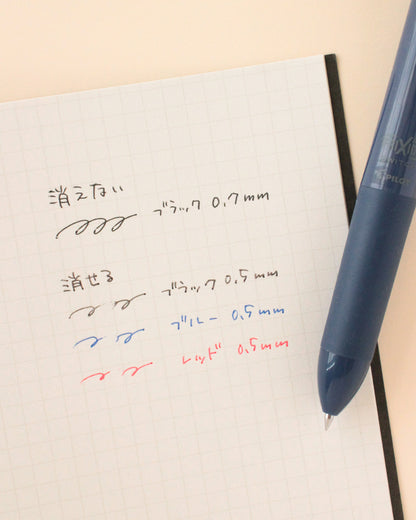 消えない
ブラック 0.7mm
消せる
ブラック 0.5mm
ブルー 0.5mm
レッド 0.5mm
PILOT